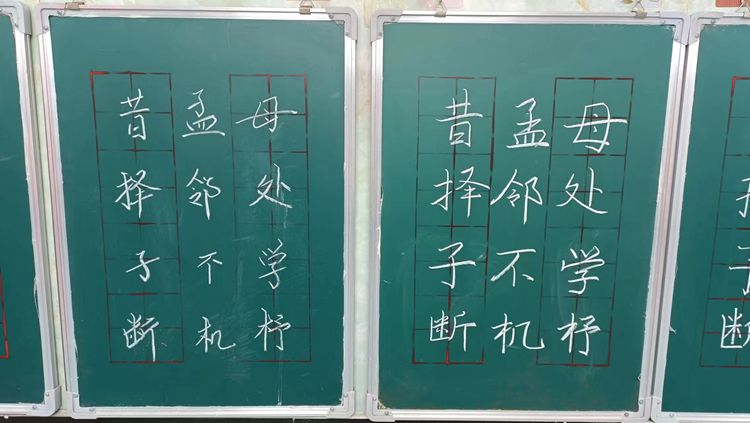 昔孟母
择邻处
子不学
断机杼
昔孟母
择邻处
子不学
断机杼